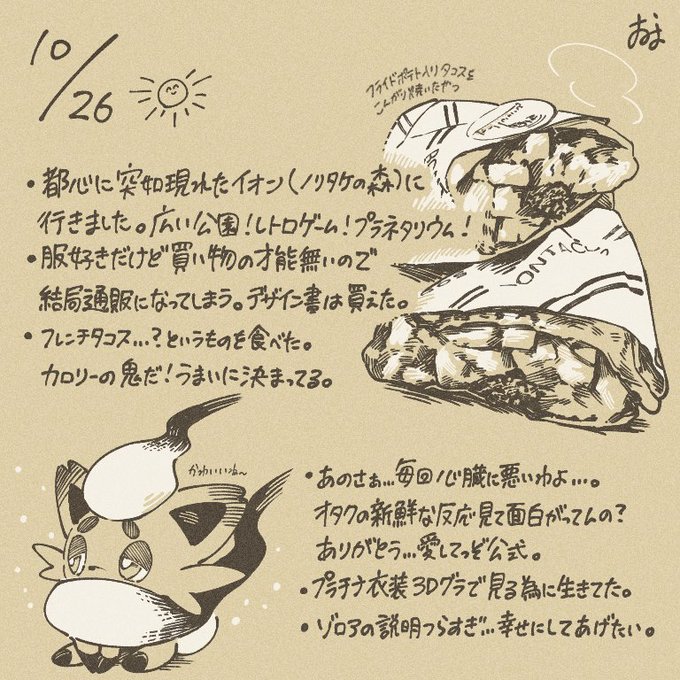 10/26
おま
フライドポテト入りタコスを
こんがり焼いたやつ
・都心に突如現れたイオン(ノリタケの森)に
行きました。広い公園!レトロゲーム!プラネタリウム!
・服好きだけど買い物の才能無いので
結局通販になってしまう。デザイン書は買えた。
・フレンチタコス…?というものを食べた。
カロリーの鬼だ!うまいに決まってる。
ONTACO
かわいいね〜
・あのさぁ…毎回心臓に悪いわよ…。
オタクの新鮮な反応見て面白がってんの?
ありがとう…愛してっぞ公式。
・プラチナ衣装3Dグラで見る為に生きてた。
・ゾロアの説明つらすぎ…幸せにしてあげたい。